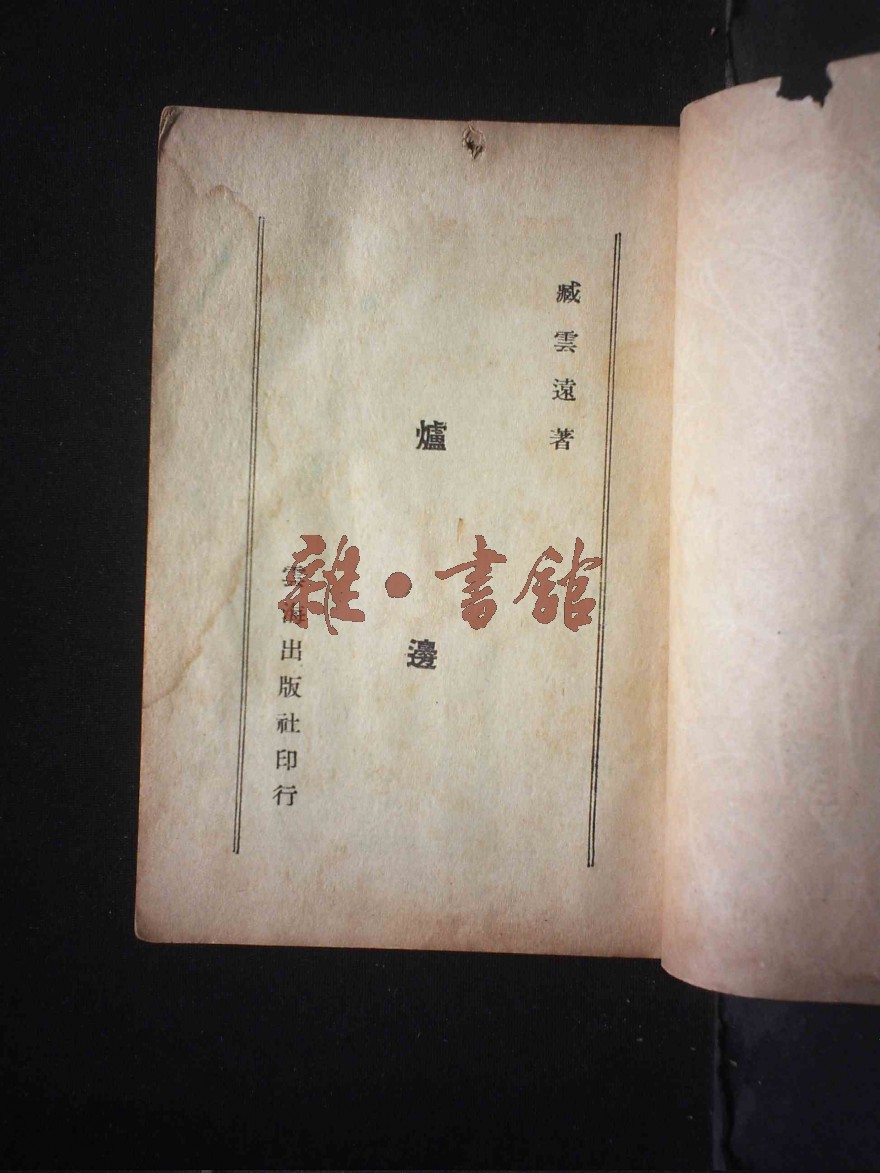 臧雲遠著
爐邊
雲海出版社印行
雜·書館